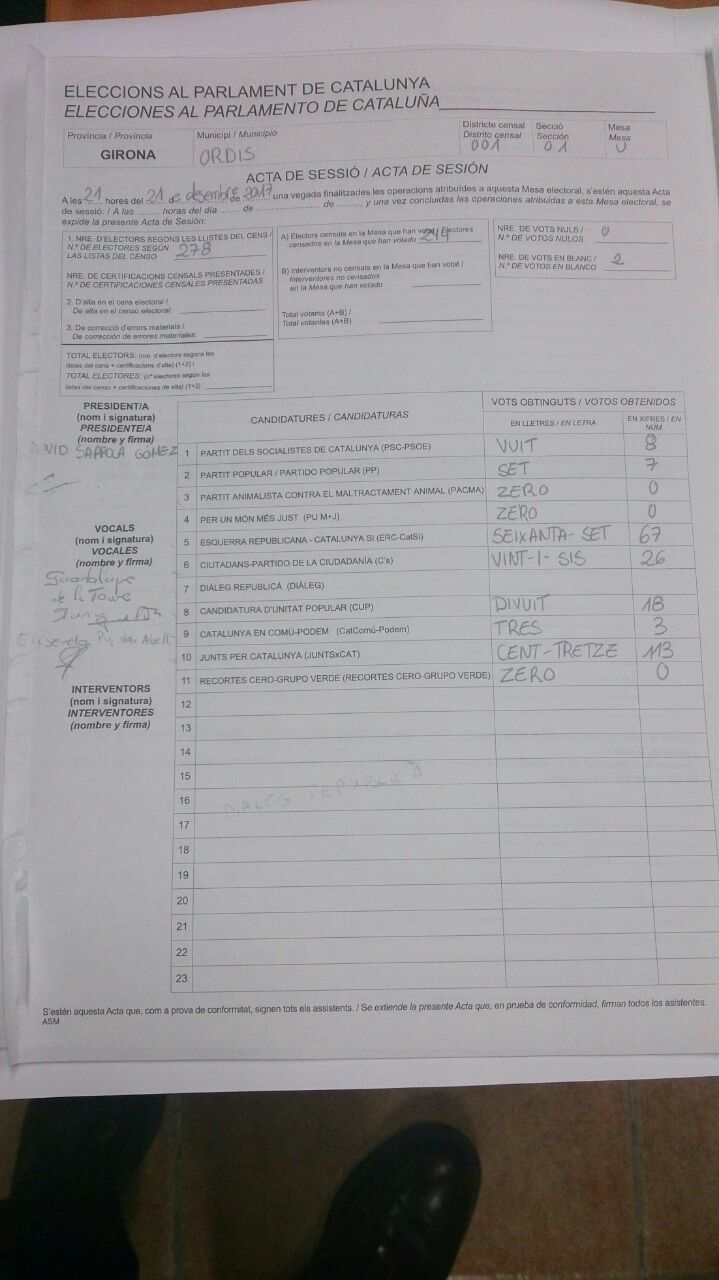 ELECCIONS AL PARLAMENT DE CATALUNYA
ELECCIONES AL PARLAMENTO DE CATALUÑA
Província / Provincia
GIRONA
Municipi / Municipio
ORDIS
Districte censal
Distrito censal
001
Secció
Sección
01
Mesa
Mesa
U
ACTA DE SESSIÓ / ACTA DE SESIÓN
A les 21 hores del 21 de desembre de 2017, una vegada finalitzades les operacions atribuïdes a aquesta Mesa electoral, s'estén aquesta Acta
de sessió: / A las ........ horas del día ........ de ........................ de ........., y una vez concluidas las operaciones atribuidas a esta Mesa electoral, se
expide la presente Acta de Sesión:
1. NRE. D'ELECTORS SEGONS LES LLISTES DEL CENS /
N.º DE ELECTORES SEGÚN
LAS LISTAS DEL CENSO 278
NRE. DE CERTIFICACIONS CENSALS PRESENTADES /
N.º DE CERTIFICACIONES CENSALES PRESENTADAS
2. D'alta en el cens electoral /
De alta en el censo electoral:
3. De correcció d'errors materials /
De corrección de errores materiales:
TOTAL ELECTORS: (nre. d'electors segons les
llistes del cens + certificacions d'alta) (1+2) /
TOTAL ELECTORES: (nº electores según las
listas del censo + certificaciones de alta) (1+2)
A) Electors censats en la Mesa que han votat / Electores
censados en la Mesa que han votado 244
B) Interventors no censats en la Mesa que han votat /
Interventores no censados
en la Mesa que han votado
Total votants (A+B) /
Total votantes (A+B)
NRE. DE VOTS NULS / 0
N.º DE VOTOS NULOS
NRE. DE VOTS EN BLANC / 2
N.º DE VOTOS EN BLANCO
PRESIDENT/A
(nom i signatura)
PRESIDENTE/A
(nombre y firma)
VOCALS
(nom i signatura)
VOCALES
(nombre y firma)
Guadalupe
de la Torre
INTERVENTORS
(nom i signatura)
INTERVENTORES
(nombre y firma)
CANDIDATURES / CANDIDATURAS
VOTS OBTINGUTS / VOTOS OBTENIDOS
EN LLETRES / EN LETRA
EN XIFRES / EN NÚM.
1 PARTIT DELS SOCIALISTES DE CATALUNYA (PSC-PSOE) VUIT 8
2 PARTIT POPULAR / PARTIDO POPULAR (PP) SET 7
3 PARTIT ANIMALISTA CONTRA EL MALTRACTAMENT ANIMAL (PACMA) ZERO 0
4 PER UN MÓN MÉS JUST (PU M+J) ZERO 0
5 ESQUERRA REPUBLICANA - CATALUNYA SÍ (ERC-CatSí) SEIXANTA-SET 67
6 CIUTADANS-PARTIDO DE LA CIUDADANÍA (C's) VINT-I-SIS 26
7 DIÀLEG REPUBLICÀ (DIÀLEG)
8 CANDIDATURA D'UNITAT POPULAR (CUP) DIVUIT 18
9 CATALUNYA EN COMÚ-PODEM (CatComú-Podem) TRES 3
10 JUNTS PER CATALUNYA (JUNTSxCAT) CENT-TRETZE 113
11 RECORTES CERO-GRUPO VERDE (RECORTES CERO-GRUPO VERDE) ZERO 0
12
13
14
15
16 DIALEG REPUBLICÀ
17
18
19
20
21
22
23
S'estén aquesta Acta que, com a prova de conformitat, signen tots els assistents. / Se extiende la presente Acta que, en prueba de conformidad, firman todos los asistentes.
ASM